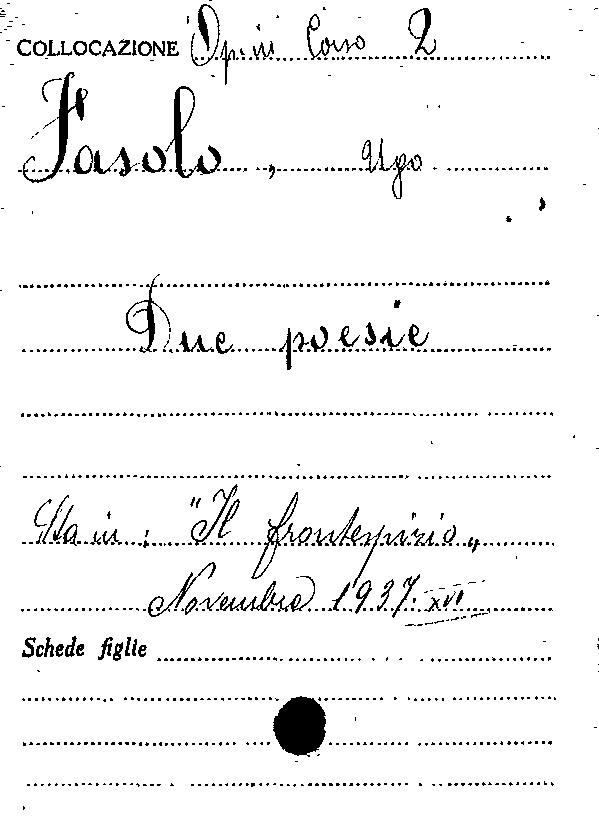 COLLOCAZIONE Op.ni Corso 2
Fasolo, Ugo
Due poesie
Sta in: "Il frontespizio"
Novembre 1937. XVI
Schede figlie